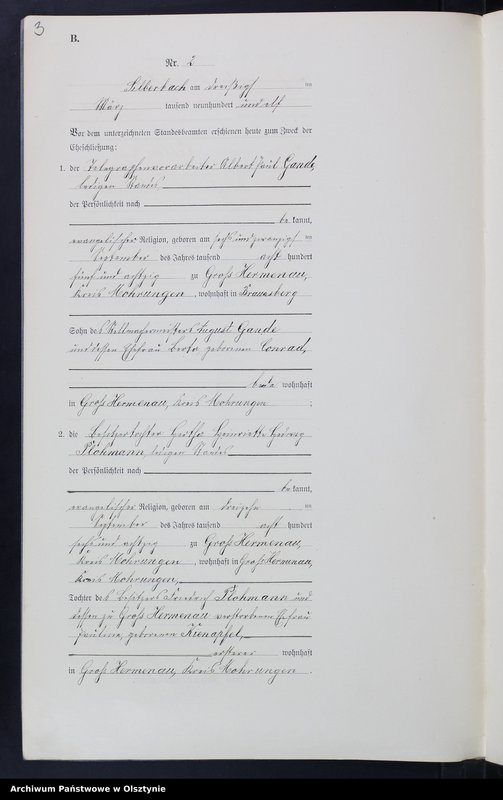 3
B.
Nr. 2
Silberbach am dreißigsten
März tausend neunhundert und elf
Vor dem unterzeichneten Standesbeamten erschienen heute zum Zweck der
Eheschließung:
1. der Telegraphenvorarbeiter Albert Paul Gande,
ledigen Standes
der Persönlichkeit nach
be kannt,
evangelischer Religion, geboren am sechsundzwanzigsten
September des Jahres tausend acht hundert
fünf und achtzig zu Groß Hermenau,
Kreis Mohrungen, wohnhaft in Braunsberg
Sohn des Stellmachermeisters August Gande
und dessen Ehefrau Berta geborenen Conrad,
beide wohnhaft
in Groß Hermenau, Kreis Mohrungen ;
2. die Besitzertochter Hertha Henriette Hedwig
Plohmann, ledigen Standes
der Persönlichkeit nach
be kannt,
evangelischer Religion, geboren am dreizehnten
September des Jahres tausend acht hundert
sechs und achtzig zu Groß Hermenau,
Kreis Mohrungen, wohnhaft in Groß Hermenau,
Kreis Mohrungen,
Tochter des Besitzers Friedrich Plohmann und
dessen zu Groß Hermenau verstorbenen Ehefrau
Pauline, geborenen Kienapfel,
ersterer wohnhaft
in Groß Hermenau, Kreis Mohrungen.
Archiwum Państwowe w Olsztynie